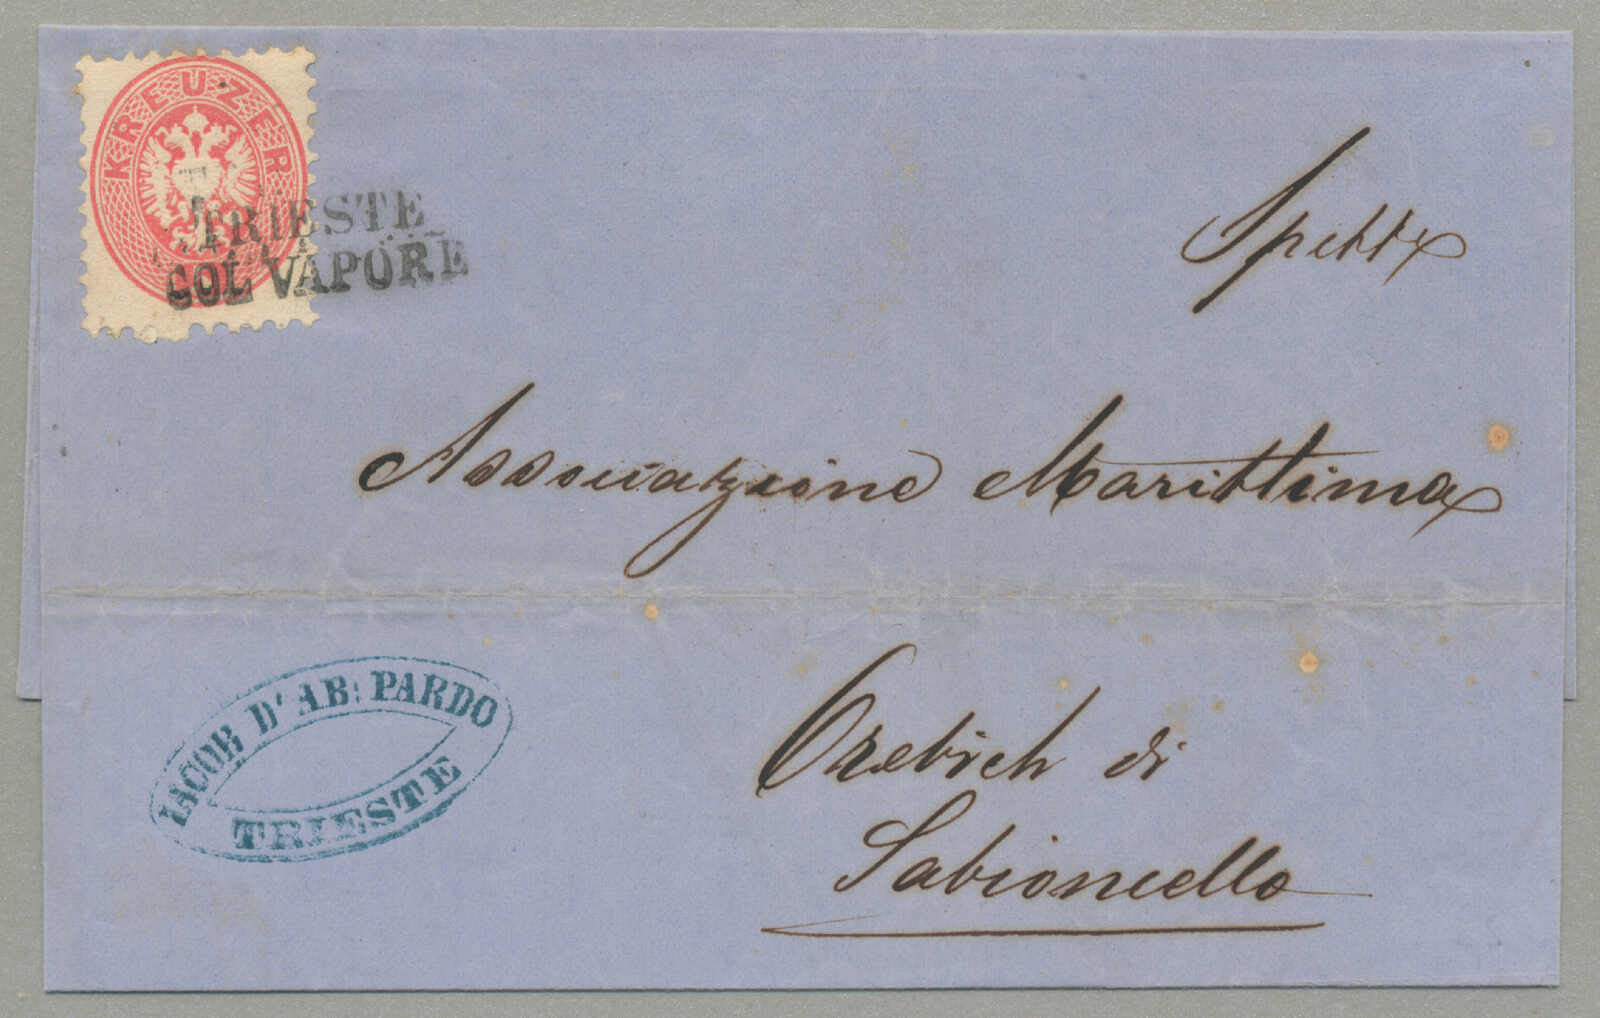 KREUZER
TRIESTE
COL VAPORE
Spettx
Associazione Marittima
Orebich di
Sabioncello
IACOB D'AB: PARDO
TRIESTE